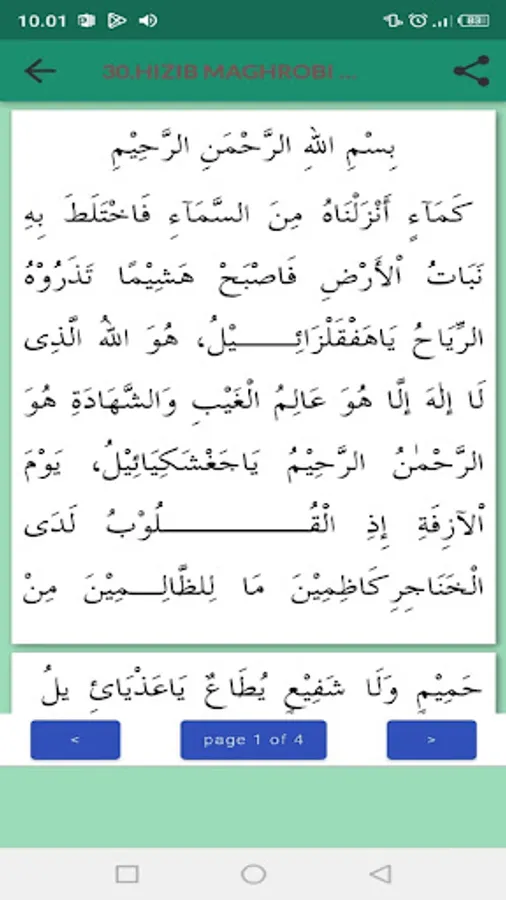 10.01
83
30.HIZIB MAGHROBI ...
بِسْمِ اللهِ الرَّحْمَنِ الرَّحِيْمِ
كَمَآءٍ أَنْزَلْنَاهُ مِنَ السَّمَآءِ فَاخْتَلَطَ بِهِ
نَبَاتُ اْلأَرْضِ فَاصْبَحْ هَشِيْمًا تَذَرُوْهُ
الرِّيَاحُ يَاهَفْقَلْزَائِـــــيْلُ، هُوَ اللهُ الَّذِى
لَا إِلٰهَ إِلَّا هُوَ عَالِمُ الْغَيْبِ وَالشَّهَادَةِ هُوَ
الرَّحْمٰنُ الرَّحِيْمُ يَاجَغْشَكِيَائِيْلُ، يَوْمَ
اْلآزِفَةِ إِذِ الْقُـــــــــــلُوْبُ لَدَى
الْحَنَاجِرِكَاظِمِيْنَ مَا لِلظَّالِـــمِيْنَ مِنْ
حَمِيْمٍ وَلَا شَفِيْعٍ يُطَاعٌ يَاعَذْيَائِ يلُ
< page 1 of 4 >